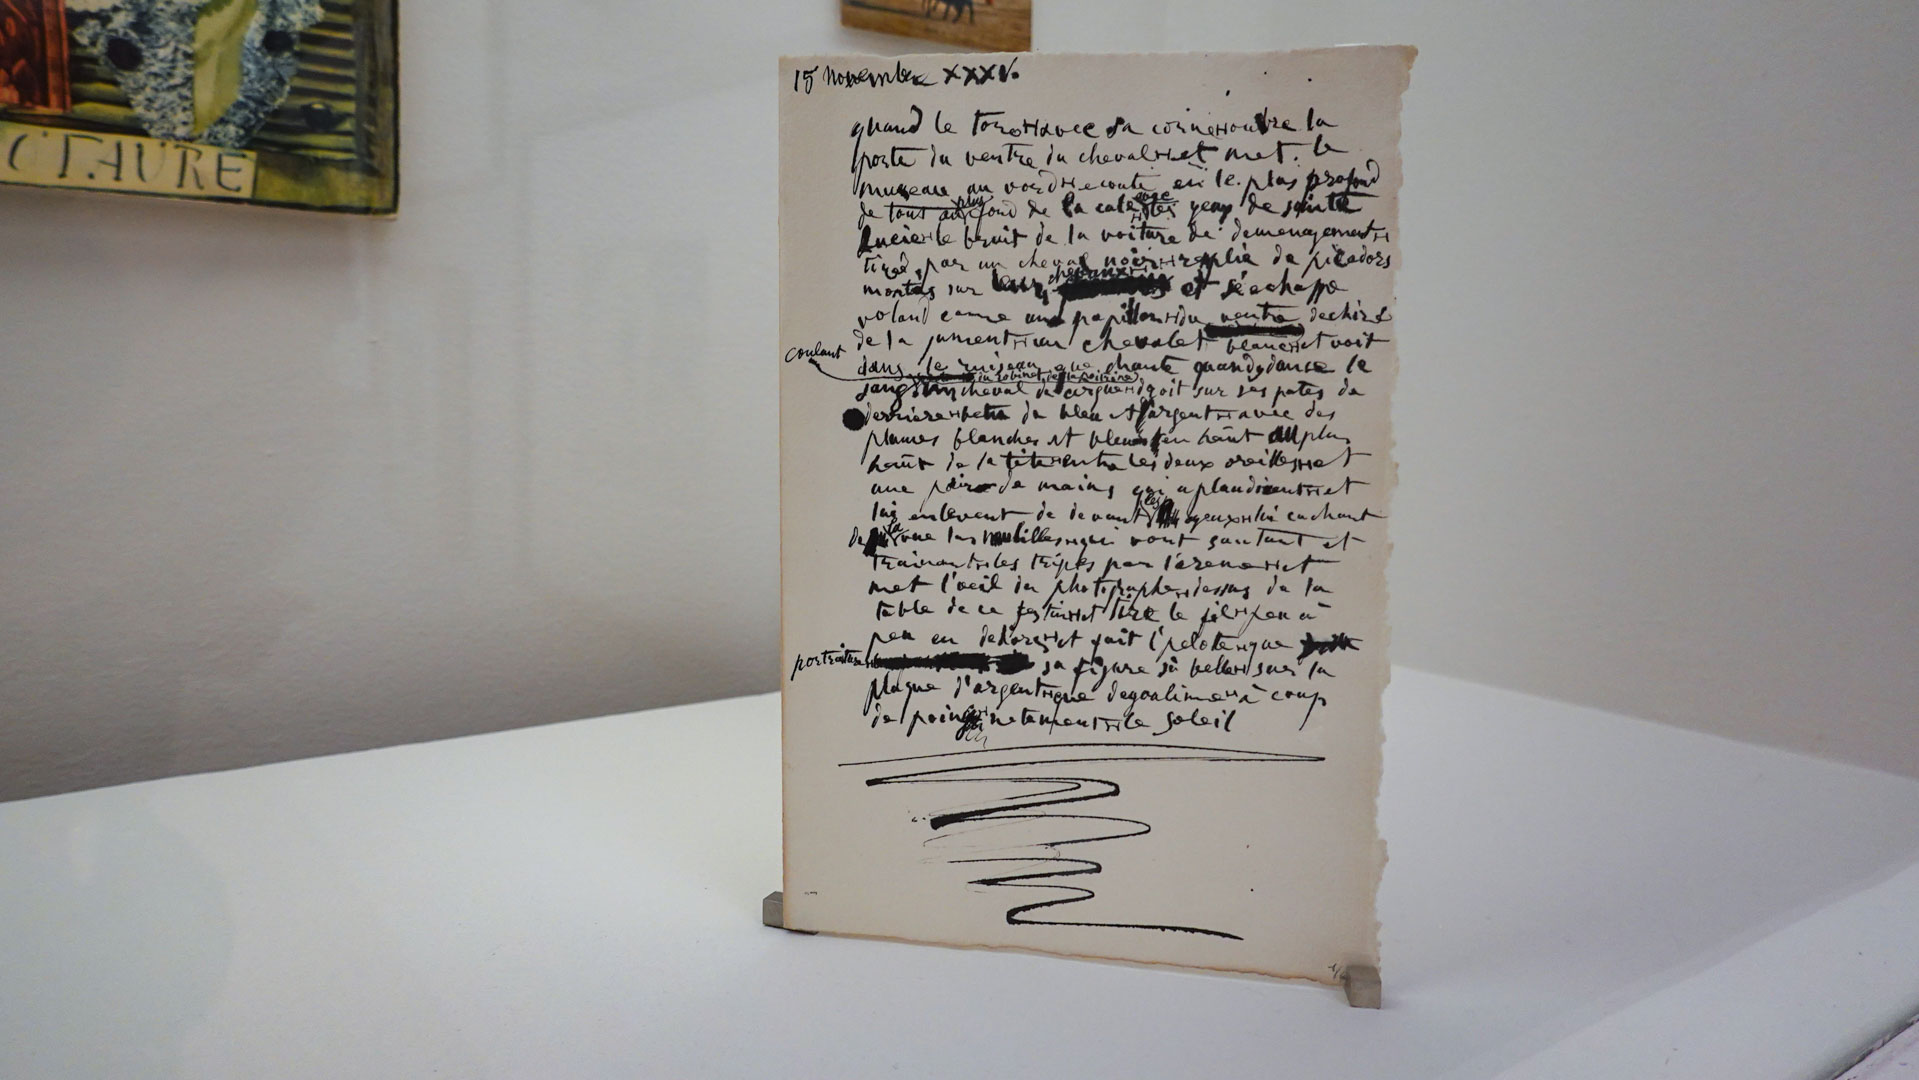 CTAURE
15 novembre XXXV.
quand le toro avec sa corne ouvre la
porte du ventre du cheval et met. le
museau au bord ecoute en le plus profond
de tout plus fond de la cale avec yeux de sainte
Lucie le bruit de la voiture de demenagement
tireé par un cheval noir remplie de picadors
mortes sur leurs chevaux et s'echappe
volant comme un papillon du ventre dechiré
de la jument un chevalet blanc et voit
coulant
dans le ruiseau que chante quand danse le
du robinet de la poitrine
sang cheval de cirque droit sur ses pates de
derriere vetu de bleu et argent avec des
plumes blanches et bleu en haut au plus
haut de la tete entre les deux oreilles et
une paire de mains qui aplaudissent et
lui enlevent de devant les yeux lui cachant
de la vue les qui vont sautant et
trainant les tripes par l'arene et
met l'oeil du photographe dessus de la
table de ce festin et tire le fil peu à
peu en dehors et fait l'pelote que
portraiture sa figure si belle sur la
plaque d'argent que degouline à coup
de poing netement le soleil